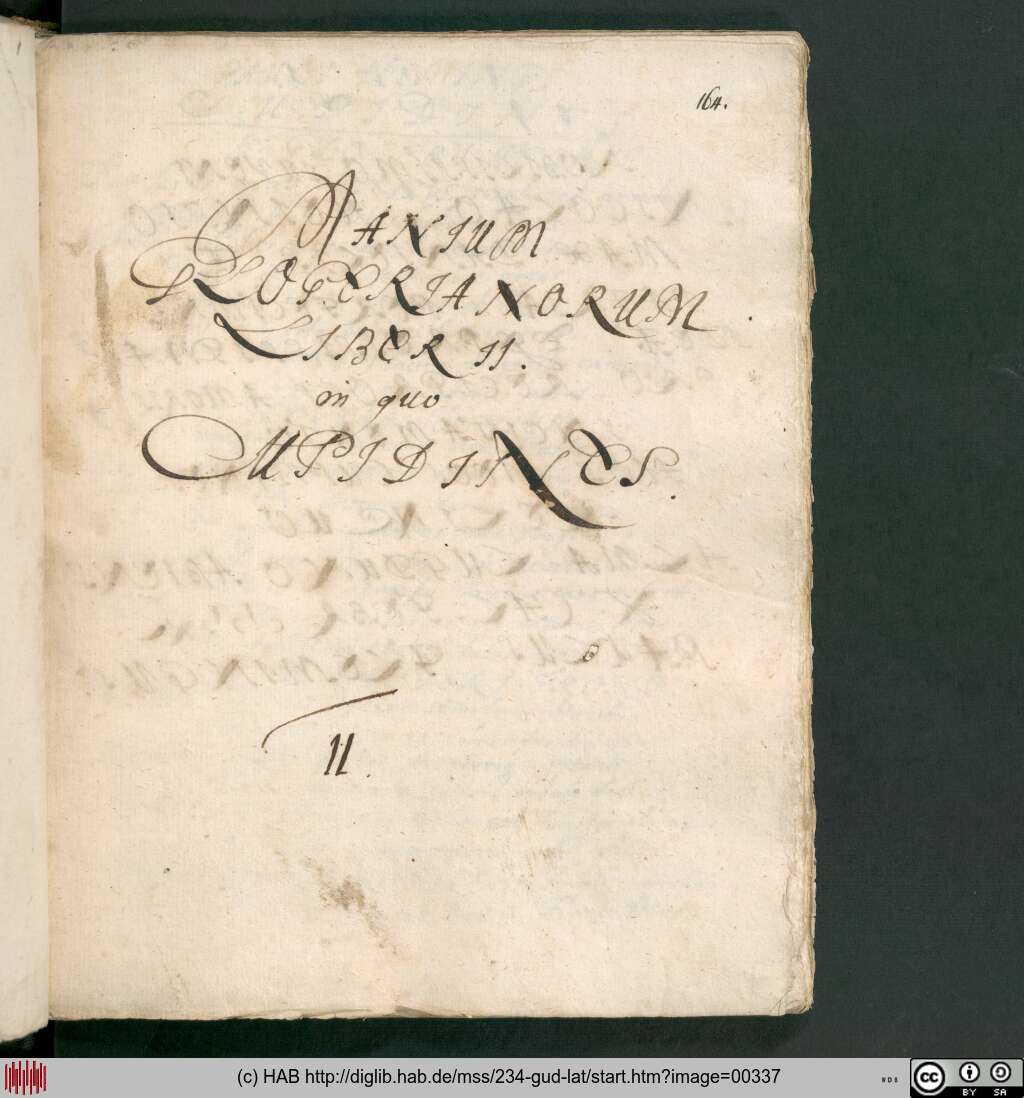 164.
MANIUM
GLOGERIANORUM.
LIBER II.
in quo
CUPIDINES.
II.
(c) HAB http://diglib.hab.de/mss/234-gud-lat/start.htm?image=00337
WDB
cc
BY SA